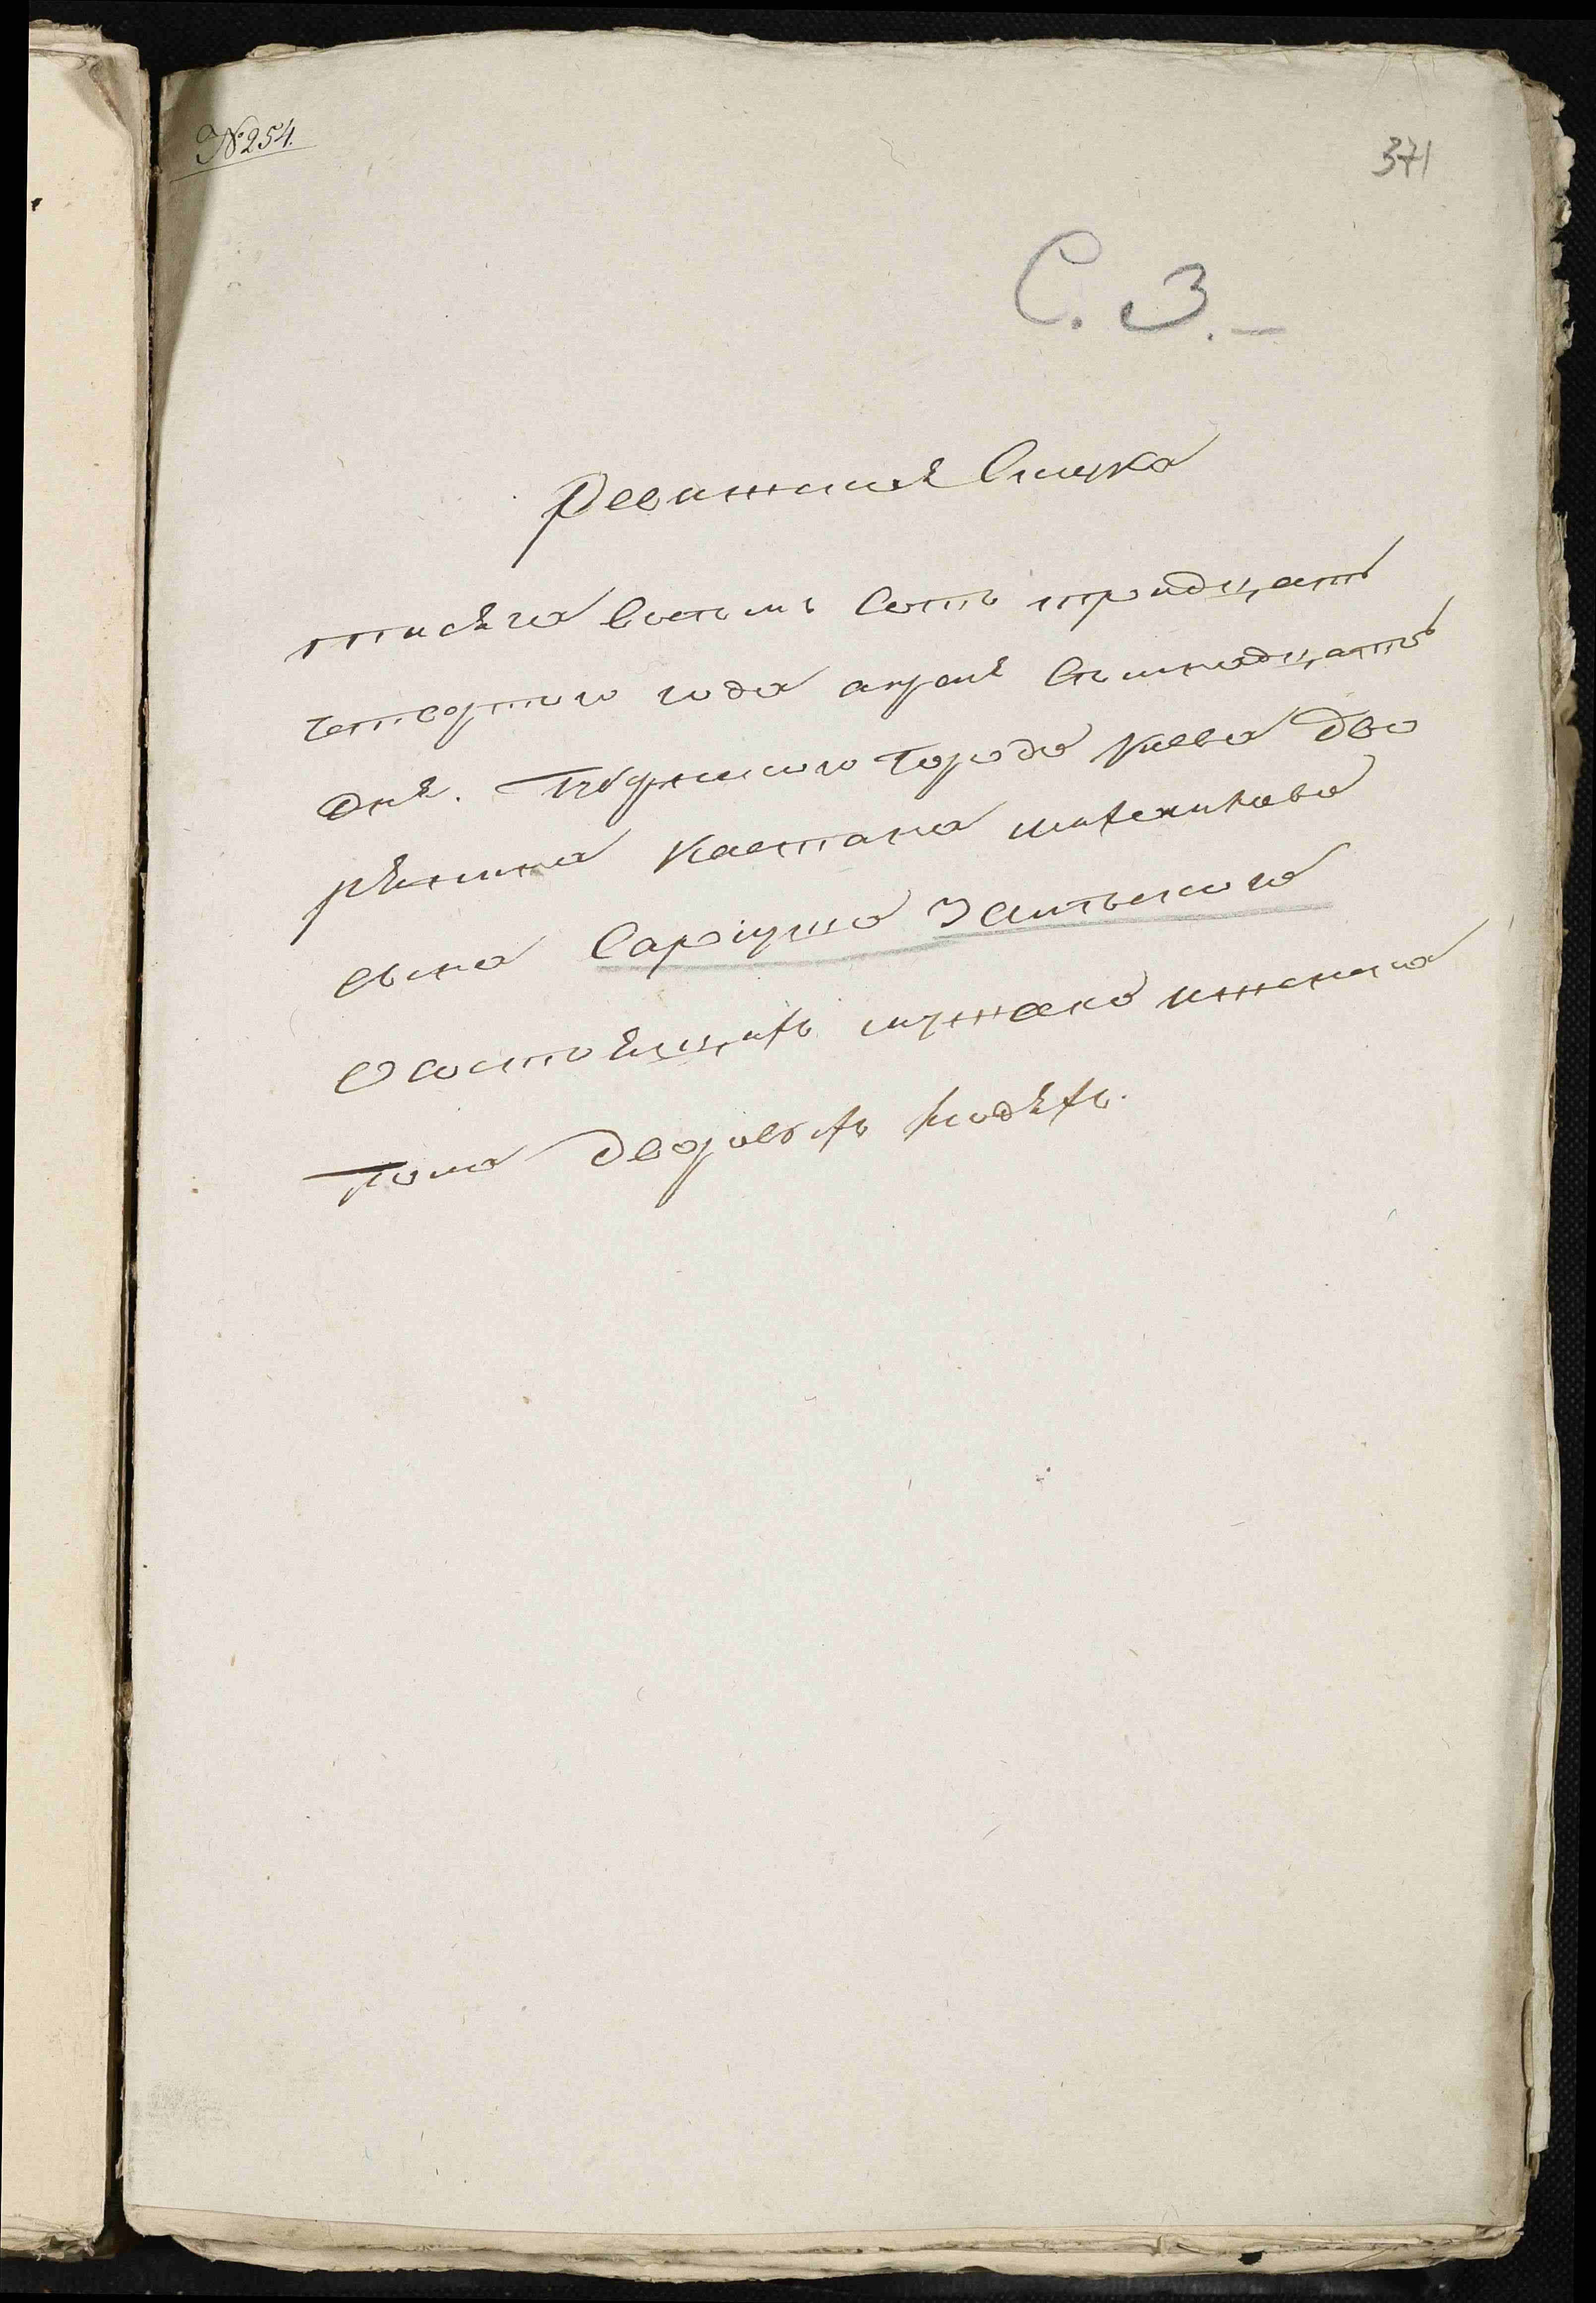 №254.
371
С. З.—
Ревижская Скаска
тысяча восемь Сотъ тридцать
четвертого года апреля Семнадцать
дня. Губернского Города Киева Дво
рянина Каетана михаилова
сына Сарiуша Замъского
О состоящихъ мужска и женска
пола дворовыхъ людяхъ.